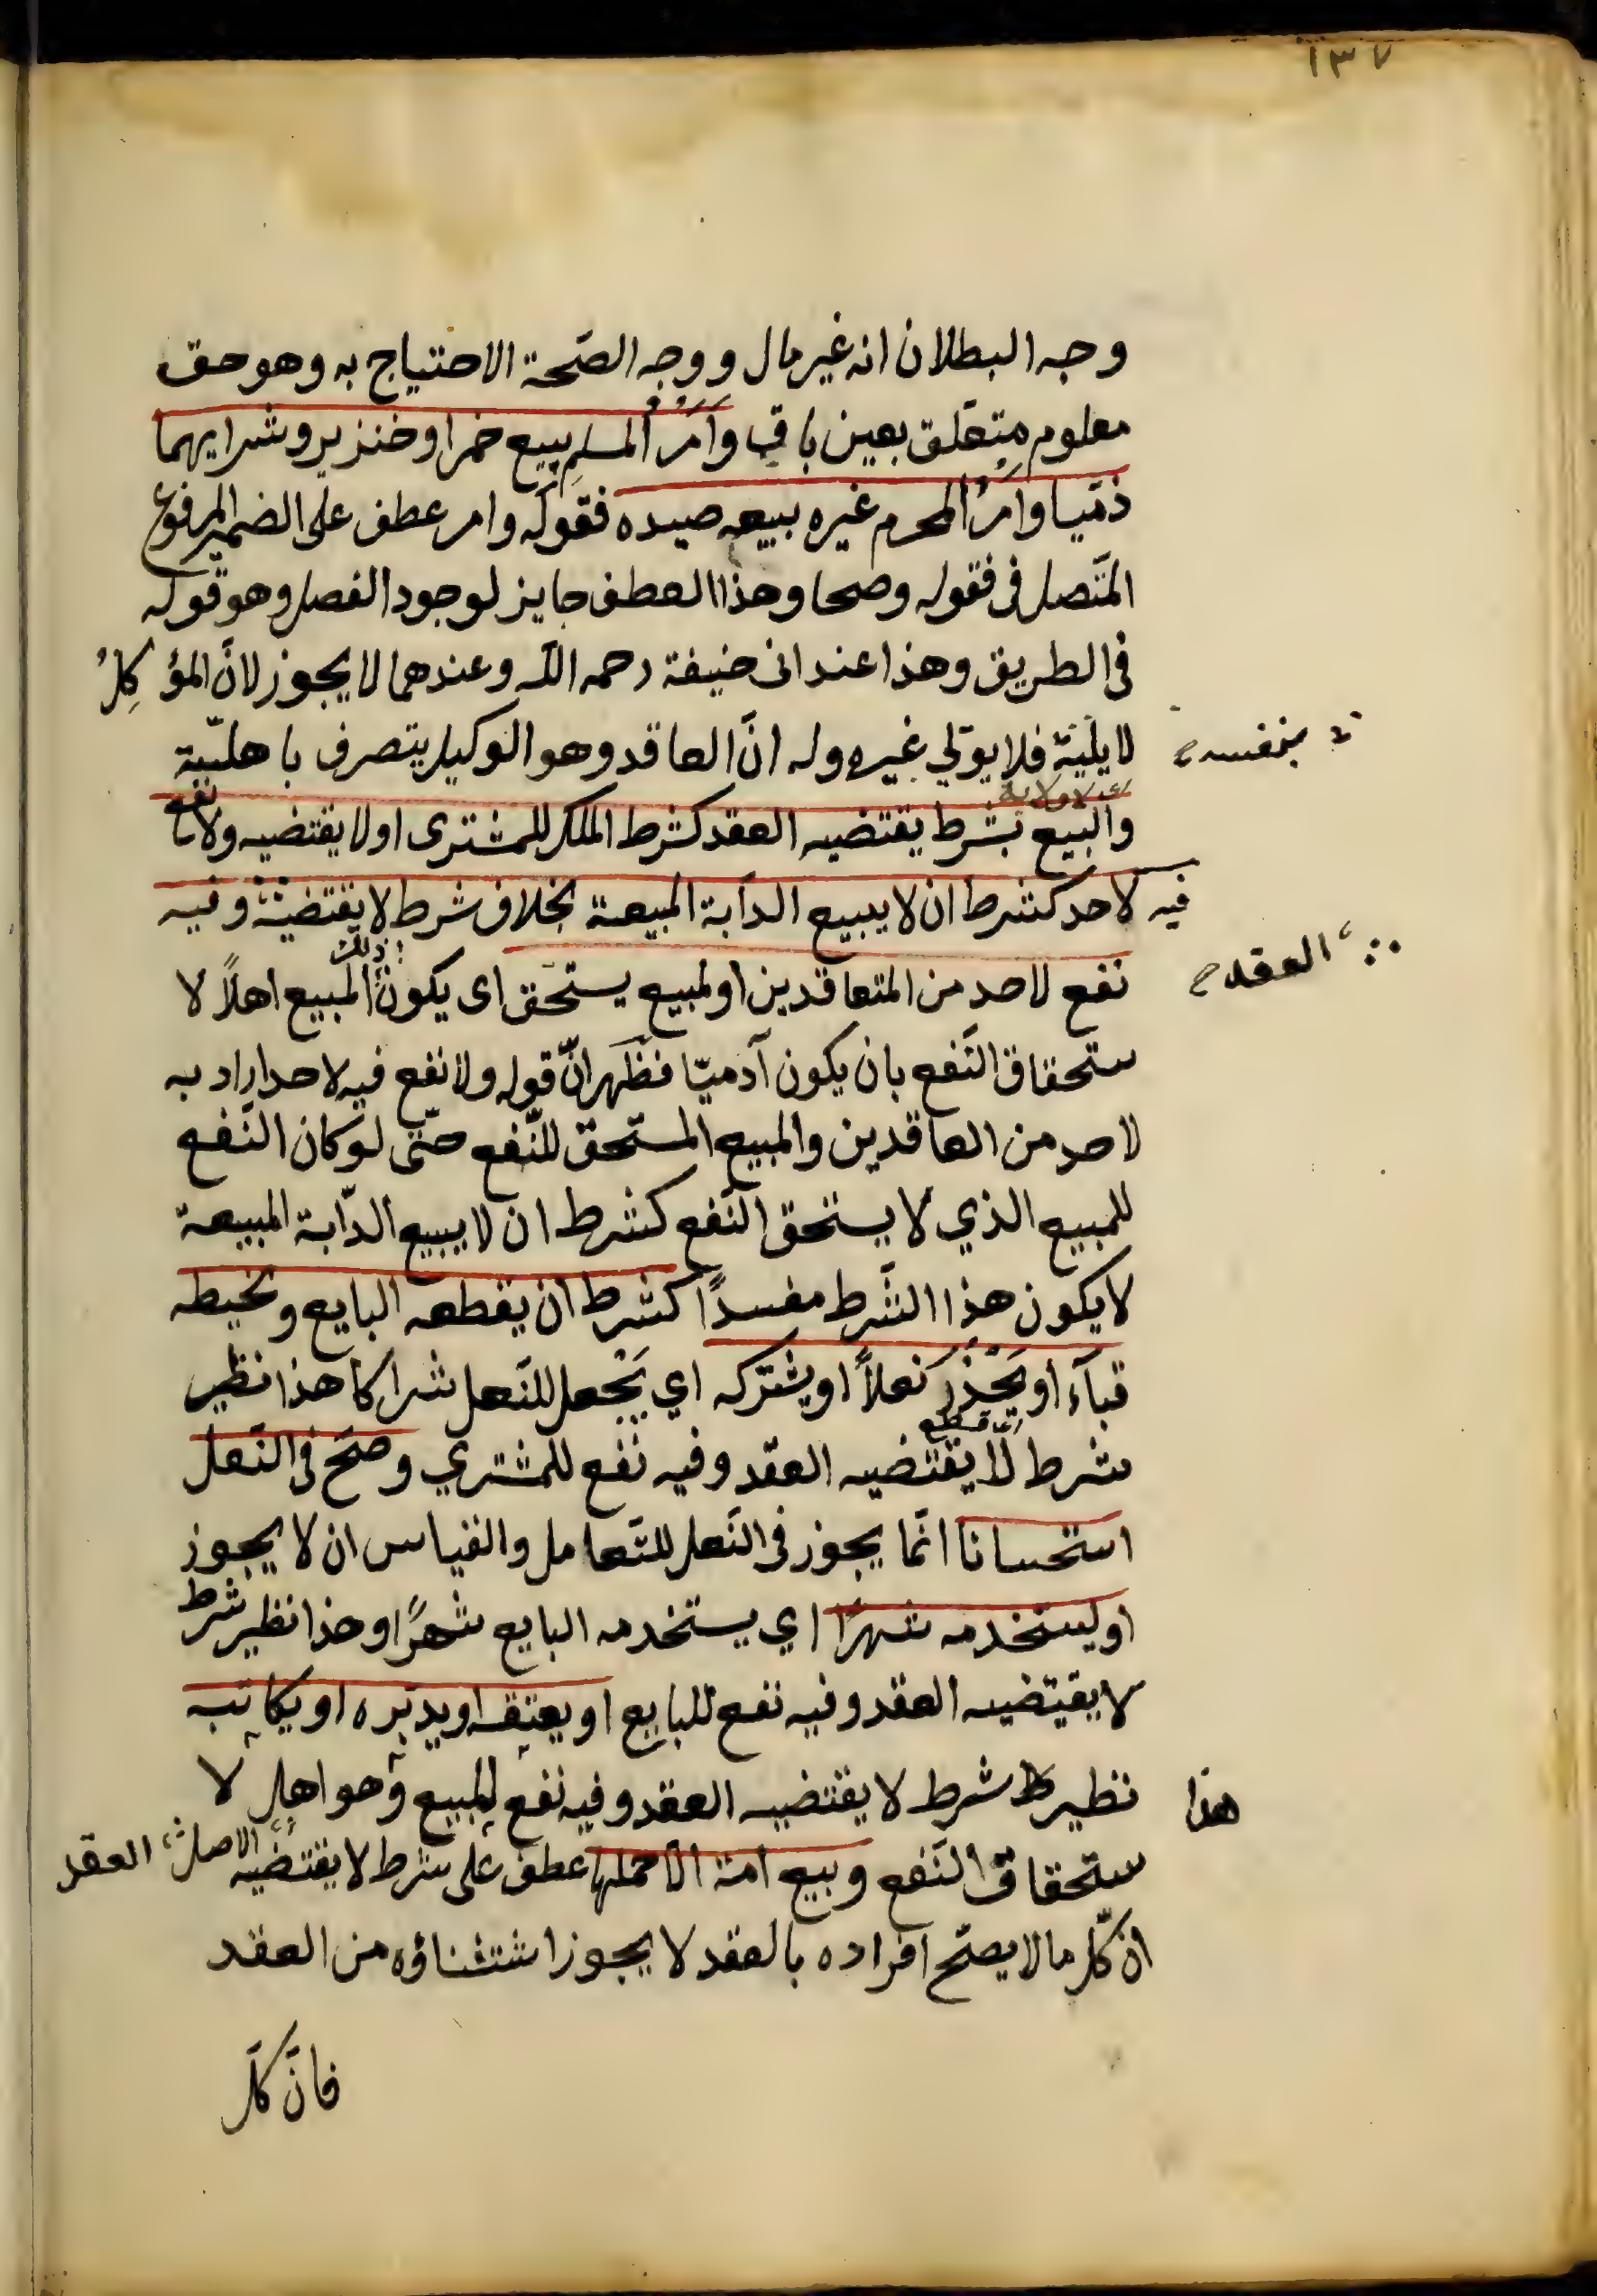 ١٣٧
وجه البطلان انه غير مال ووجه الصّحة الاحتياج به وهو حق
معلوم متعلّق بعين باق وَاَمْرُ المسلمِ ببيع خمر او خنزير وشرايهما
ذمّيا وامْرُ المحرم غيره ببيع صيده فقوله وامر عطف على الضمير المرفوع
المتّصل فى فقوله وصحا وهذا العطف جايز لوجود الفصل وهو قوله
فى الطريق وهذا عند ابى حنيفة رحمه الله وعندهما لا يجوز لانّ المؤكِلُ
لا يليه فلا يولّي غيره وله انّ العاقد وهو الوكيل يتصرف باهليّة
بنفسه
والبيع بشرط يقتضيه العقد كشرط الملك للمشترى او لا يقتضيه ولا نفع
فيه لاحد كشرط ان لا يبيع الدآبة المبيعة بخلاف شرط لا يقتضيه وفيه
العقد
نفع لاحد من المتعاقدين او لمبيع يستحق اى يكون ذلك المبيع اهلاً لا
ستحقاق النّفع بان يكون آدميّا فظهر انّ قوله ولا نفع فيه لاحد اراد به
لاحد من العاقدين والمبيع المستحق للنّفع حتى لو كان النّفع
للمبيع الذي لا يستحق النّفع كشرط ان لا يبيع الدّابة المبيعة
لا يكون هذا الشّرط مفسدًا كشرط ان يقطعه البايع ويخيطه
قبآء او يَحْذُر نعلاً او يشركه اي يَجْعل للنّعل شراكا هذا نظير
اى قطع
شرط لا يقتضيه العقد وفيه نفع للمشتري وصحّ فى النّعل
استحسانا انّما يجوز فى النّعل للتّعامل والقياس ان لا يجوز
او يستخدمه شهرًا اي يستخدمه البايع شهرًا وهذا نظير شرط
لا يقتضيه العقد وفيه نفع للبايع او يعتقه او يدبّره او يكاتبه
هذا نظير شرط لا يقتضيه العقد وفيه نفع للمبيع وهو اهل لا
ستحقاق النّفع وبيع امة الّا حملها عطف على شرط لا يقتضيه العقد الاصل
انّ كلّ ما لا يصحّ افراده بالعقد لا يجوز استثناؤه من العقد
فانّ كلّ